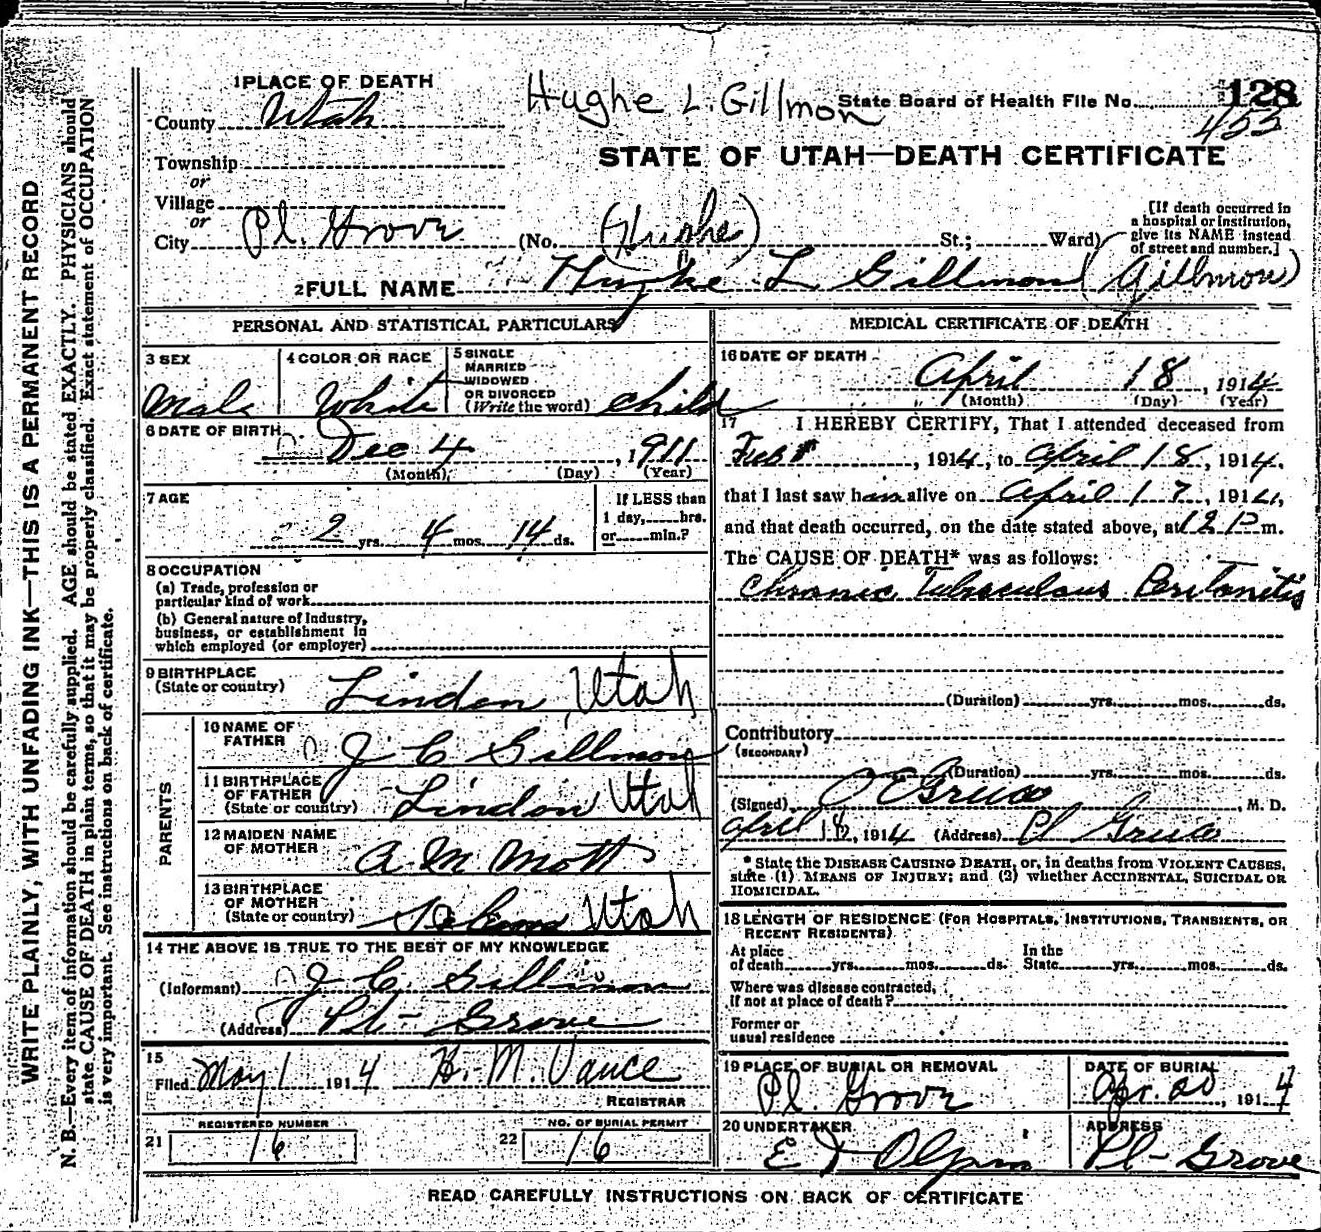 WRITE PLAINLY, WITH UNFADING INK—THIS IS A PERMANENT RECORD
N. B.—Every item of information should be carefully supplied. AGE should be stated EXACTLY. PHYSICIANS should
state CAUSE OF DEATH in plain terms, so that it may be properly classified. Exact statement of OCCUPATION
is very important. See instructions on back of certificate.
1 PLACE OF DEATH
Hughe L. Gillmon
State Board of Health File No. 128
453
County Utah
STATE OF UTAH—DEATH CERTIFICATE
Township
or
Village
or
City Pl. Grove (No. (Hughe) St.; Ward)
[If death occurred in
a hospital or institution,
give its NAME instead
of street and number.]
2 FULL NAME Hughe L Gillmon (Gillmon)
PERSONAL AND STATISTICAL PARTICULARS
3 SEX
Male
4 COLOR OR RACE
White
5 SINGLE
MARRIED
WIDOWED
OR DIVORCED
(Write the word) child
6 DATE OF BIRTH
Dec 4, 1911
(Month) (Day) (Year)
7 AGE
2 yrs. 4 mos. 14 ds.
If LESS than
1 day, hrs.
or min.?
8 OCCUPATION
(a) Trade, profession or
particular kind of work
(b) General nature of industry,
business, or establishment in
which employed (or employer)
9 BIRTHPLACE
(State or country) Lindon, Utah
PARENTS
10 NAME OF
FATHER J C Gillmon
11 BIRTHPLACE
OF FATHER
(State or country) Lindon Utah
12 MAIDEN NAME
OF MOTHER A M Mott
13 BIRTHPLACE
OF MOTHER
(State or country) Utah
14 THE ABOVE IS TRUE TO THE BEST OF MY KNOWLEDGE
(Informant) J C. Gillmon
(Address) Pl- Grove
15
Filed May 1 1914 H. M. Vance
REGISTRAR
21 REGISTERED NUMBER
16
22 NO. OF BURIAL PERMIT
16
MEDICAL CERTIFICATE OF DEATH
16 DATE OF DEATH
April 18, 1914
(Month) (Day) (Year)
17 I HEREBY CERTIFY, That I attended deceased from
, 1914, to April 18, 1914,
that I last saw him alive on April 17, 1914,
and that death occurred, on the date stated above, at 12 P m.
The CAUSE OF DEATH* was as follows:
Chronic Tuberculous Peritonitis
(Duration) yrs. mos. ds.
Contributory
(SECONDARY)
(Duration) yrs. mos. ds.
(Signed) , M. D.
April 18, 1914 (Address) Pl Grove
* State the DISEASE CAUSING DEATH, or, in deaths from VIOLENT CAUSES,
state (1) MEANS OF INJURY; and (2) whether ACCIDENTAL, SUICIDAL OR
HOMICIDAL.
18 LENGTH OF RESIDENCE (FOR HOSPITALS, INSTITUTIONS, TRANSIENTS, OR
RECENT RESIDENTS)
At place
of death yrs. mos. ds.
In the
State yrs. mos. ds.
Where was disease contracted,
if not at place of death?
Former or
usual residence
19 PLACE OF BURIAL OR REMOVAL
Pl. Grove
DATE OF BURIAL
Apr. 20, 1914
20 UNDERTAKER
E J Olpin
ADDRESS
Pl- Grove
READ CAREFULLY INSTRUCTIONS ON BACK OF CERTIFICATE